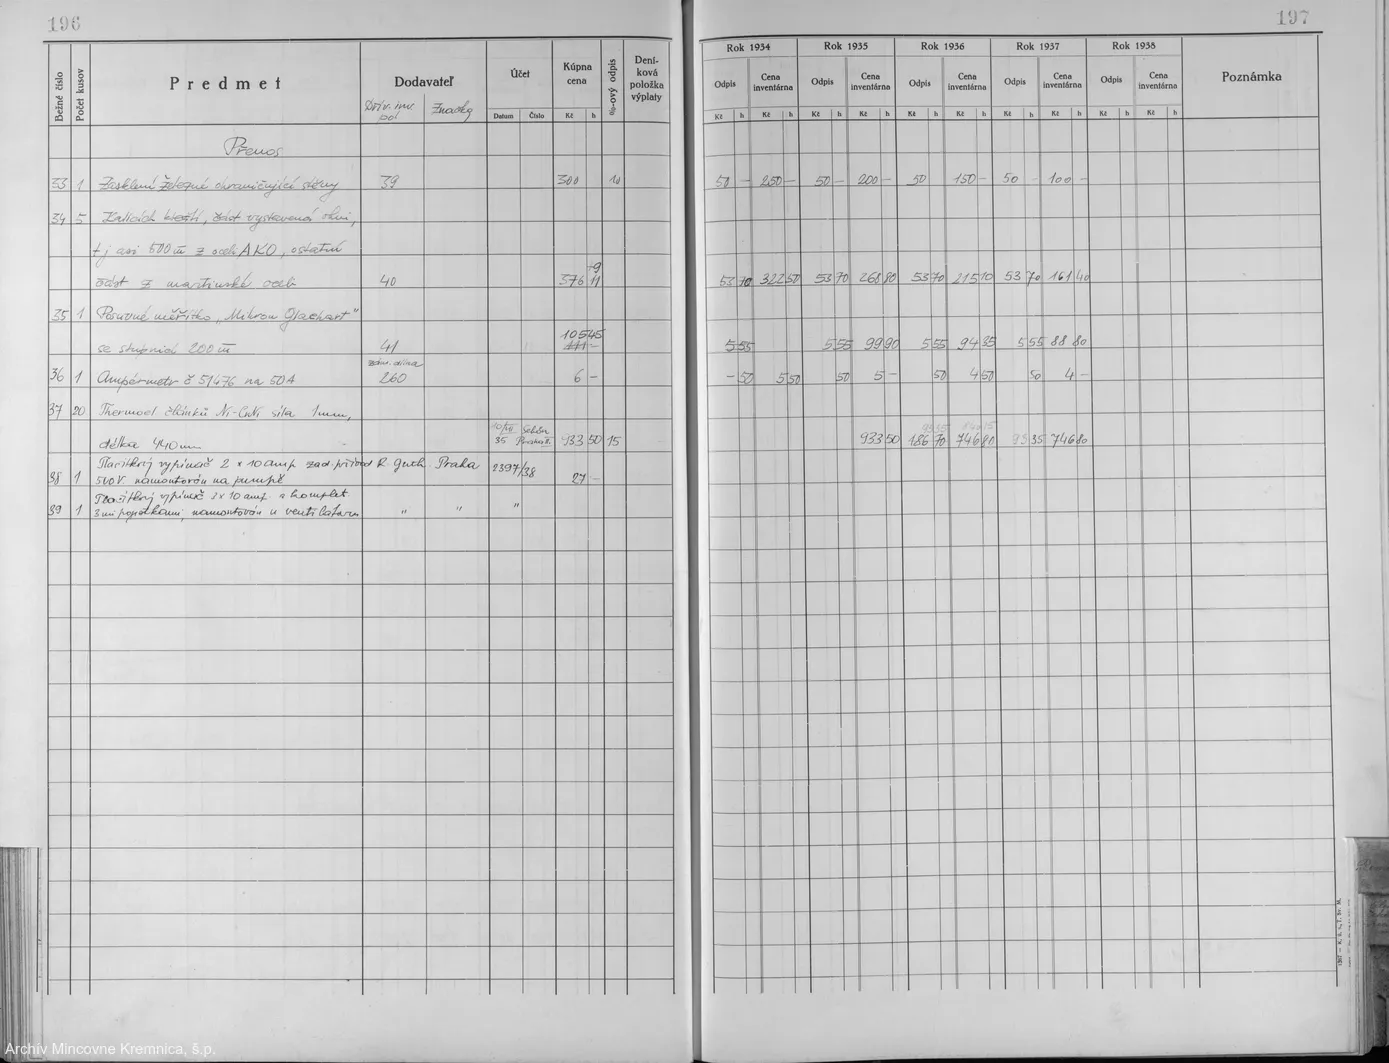 196
197
Bežné číslo
Počet kusov
Predmet
Dodavateľ
Značky
Účet
Datum
Číslo
Kúpna cena
Kč h
%-ový odpis
Deníková položka výplaty
Rok 1934
Rok 1935
Rok 1936
Rok 1937
Rok 1938
Odpis
Cena inventárna
Odpis
Cena inventárna
Odpis
Cena inventárna
Odpis
Cena inventárna
Odpis
Cena inventárna
Kč h Kč h Kč h Kč h Kč h Kč h Kč h Kč h Kč h Kč h
Poznámka
Přenos
33 1 Zasklení železné ohraničující stěny 39 300 10 50 – 250 – 50 – 200 – 50 150 – 50 – 100 –
34 5 kleští, část vystavená ohni,
t j asi 500 m z oceli AKO, ostatní
část z martinské oceli 40 376 53 70 322 50 53 70 268 80 53 70 215 10 53 70 161 40
35 1 Posuvné měřítko „Mikron
se stupnicí 200 m 41 105 45 5 55 5 55 99 90 5 55 94 35 5 55 88 80
36 1 Ampérmetr č 51476 na 50A 260 6 – – 50 5 50 50 5 – 50 4 50 50 4 –
37 20 Thermoel článků Ni-CrNi síla 1mm,
délka 440 mm 35 933 50 15 933 50 186 70 746 80 93 35 746 80
38 1 vypínač 2 x 10 amp zad. přívod R. Guth. Praha 2397/38
500 V. namontován na pumpě 27 –
39 1 vypínač 3 x 10 amp. s komplet
3mi pojistkami, namontován u ventilátoru " " "
Archív Mincovne Kremnica, š.p.